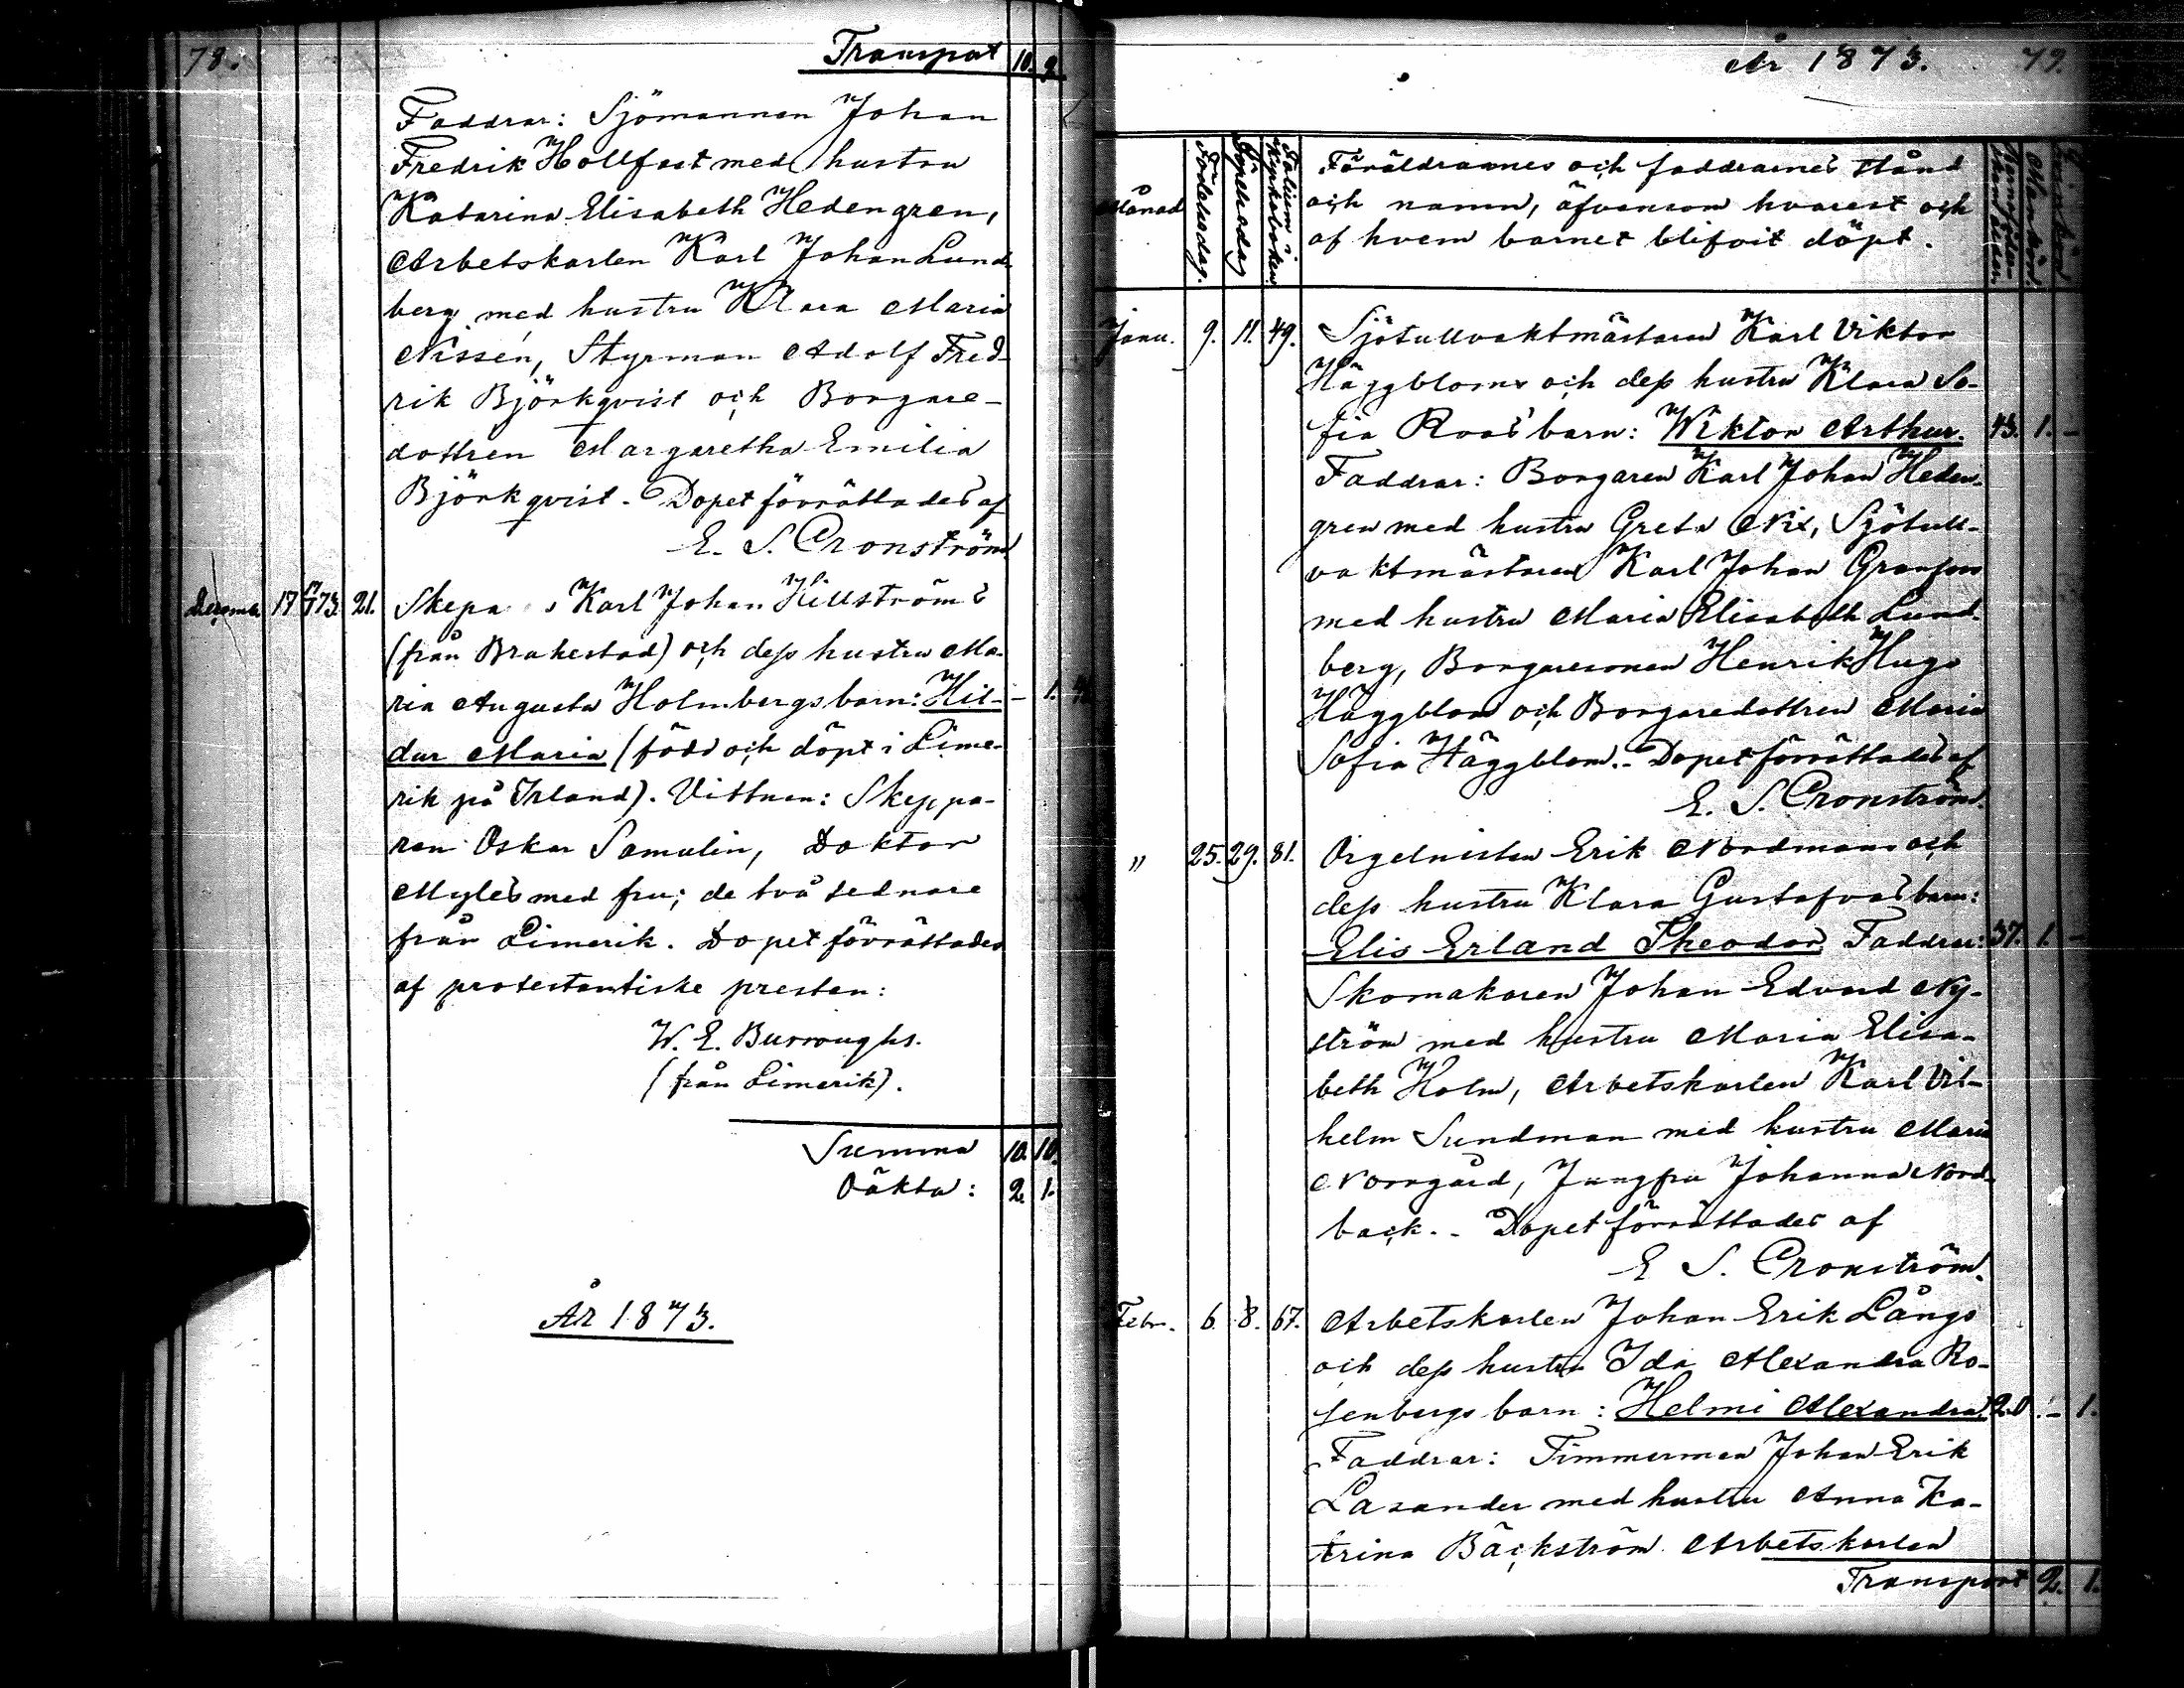 78.
Transport 10. 9.
Faddrar: Sjömannen Johan
Fredrik Hollfast med hustru
Katarina Elisabeth Hedengren,
Arbetskarlen Karl Johan Lund-
berg med hustru Klara Maria
Nissén, Styrman Adolf Fred-
rik Björkqvist och Borgare-
dottren Margaretha Emilia
Björkqvist. Dopet förrättades af
E. S. Cronström
17 21. Skepa s Karl Johan Hillströms
(från Brahestad) och dess hustru Ma-
ria Augusta Holmbergs barn: Hil- - 1.
dur Maria (född och döpt i Lime-
rik på Irland). Vittnen: Skeppa-
ren Oskar Samulin, Doktor
Myles med fru; de två sednare
från Limerik. Dopet förrättades
af protestantiske presten:
W. E. Burroughs.
(från Limerik).
Summa 10. 10.
Oäkta: 2. 1.
År 1873.
År 1873. 79.
Månad
Födelsedag.
Döpelsedag
Folium i Kyrkoboken
Föräldrarnes och faddrarnes stånd
och namn, äfvensom hvarest och
af hvem barnet blifvit döpt.
Mankön.
Janu. 9. 11. 49. Sjötullvaktmästaren Karl Viktor
Häggbloms och dess hustru Klara So-
fia Roos' barn: Wiktor Arthur. 43. 1. -
Faddrar: Borgaren Karl Johan Heden-
gren med hustru Greta Nix, Sjötull-
vaktmästaren Karl Johan Granfors
med hustru Maria Elisabeth Lund-
berg, Borgaresonen Henrik Hugo
Häggblom och Borgaredottren Maria
Sofia Häggblom. - Dopet förrättades af
E. S. Cronström.
" 25. 29. 81. Orgelnisten Erik Nordmans och
dess hustru Klara Gustafvas barn:
Elis Erland Theodor. Faddrar: 37. 1. -
Skomakaren Johan Edvard Ny-
ström med hustru Maria Elisa-
beth Holm, Arbetskarlen Karl Vil-
helm Sundman med hustru Maria
Norrgård, Jungfru Johanna Nord-
back. - Dopet förrättades af
E S. Cronström.
Febr. 6. 8. 67. Arbetskarlen Johan Erik Långs
och dess hustru Ida Alexandra Ro-
senbergs barn: Helmi Alexandra. 20. - 1.
Faddrar: Timmerman Johan Erik
Lasander med hustru Anna Ka-
trina Bäckström Arbetskarlen
Transport 2. 1.